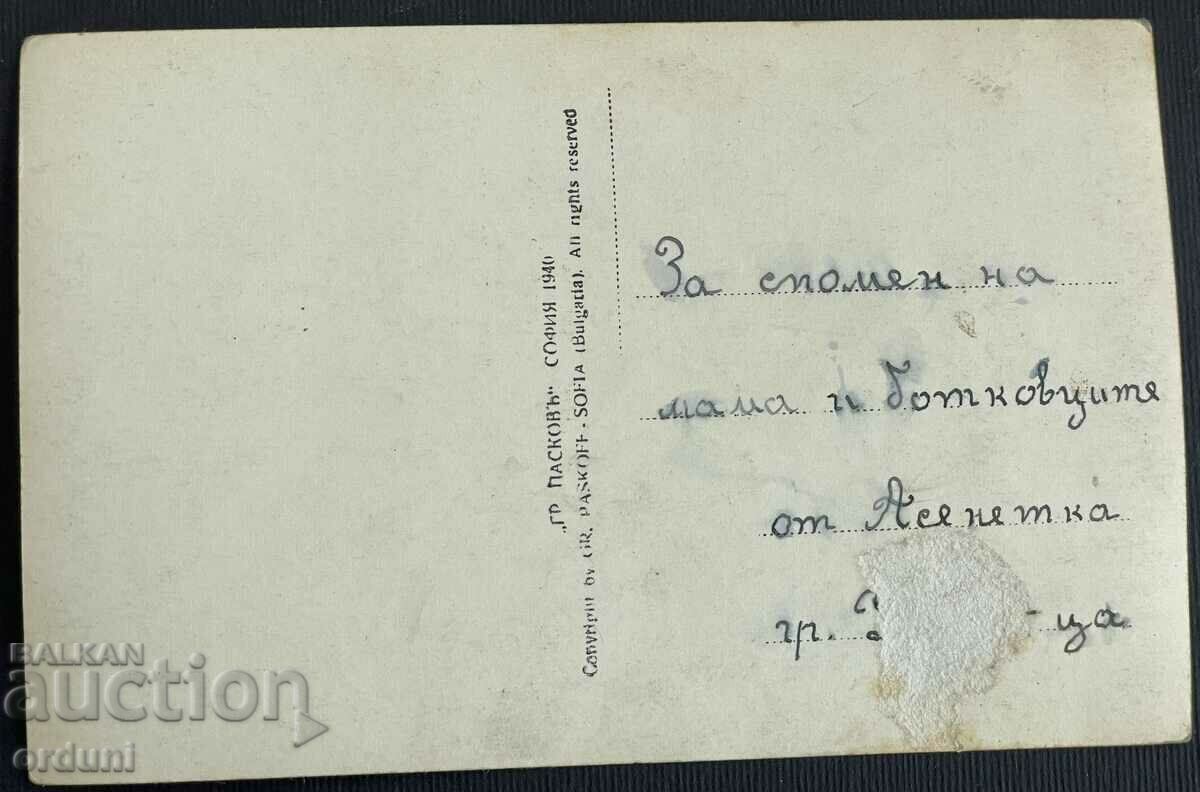 „ГР ПАСКОВЪ“ СОФИЯ 1940
Copyright by GR. PASKOFF - SOFIA (Bulgaria). All rights reserved
За спомен на
мама и Ботковците
от Асенетка
гр. -ца
BALKAN
auction
orduni